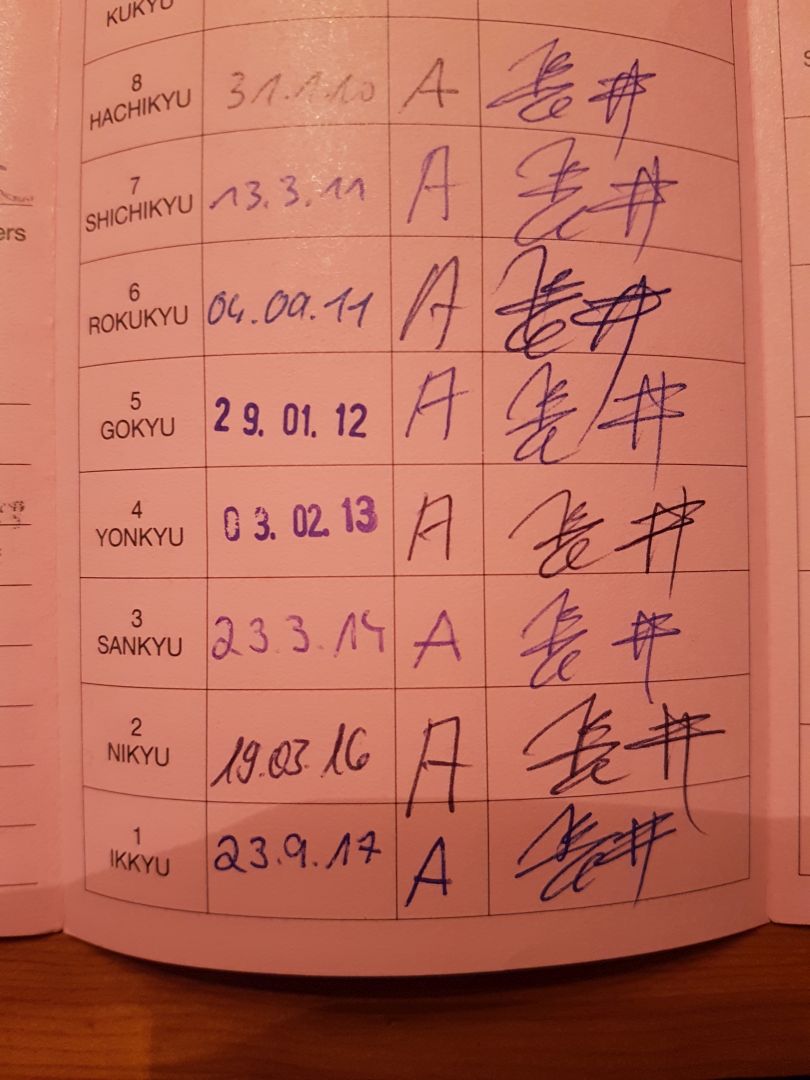 KUKYU
8
HACHIKYU 31.1.10 A
7
SHICHIKYU 13.3.11 A
6
ROKUKYU 04.09.11 A
5
GOKYU 29.01.12 A
4
YONKYU 03.02.13 A
3
SANKYU 23.3.14 A
2
NIKYU 19.03.16 A
1
IKKYU 23.9.17 A